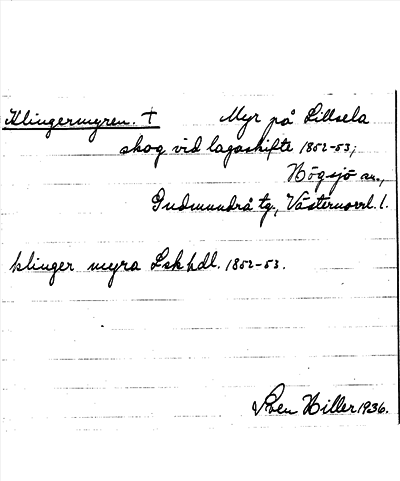 Klingermyren. † Myr på Lillsela
skog vid lagaskifte 1852-53,
Högsjö sn.,
Gudmundrå tg., Västernorrl. l.
klinger myra Lskhdl. 1852-53.
Sven Hiller 1936.